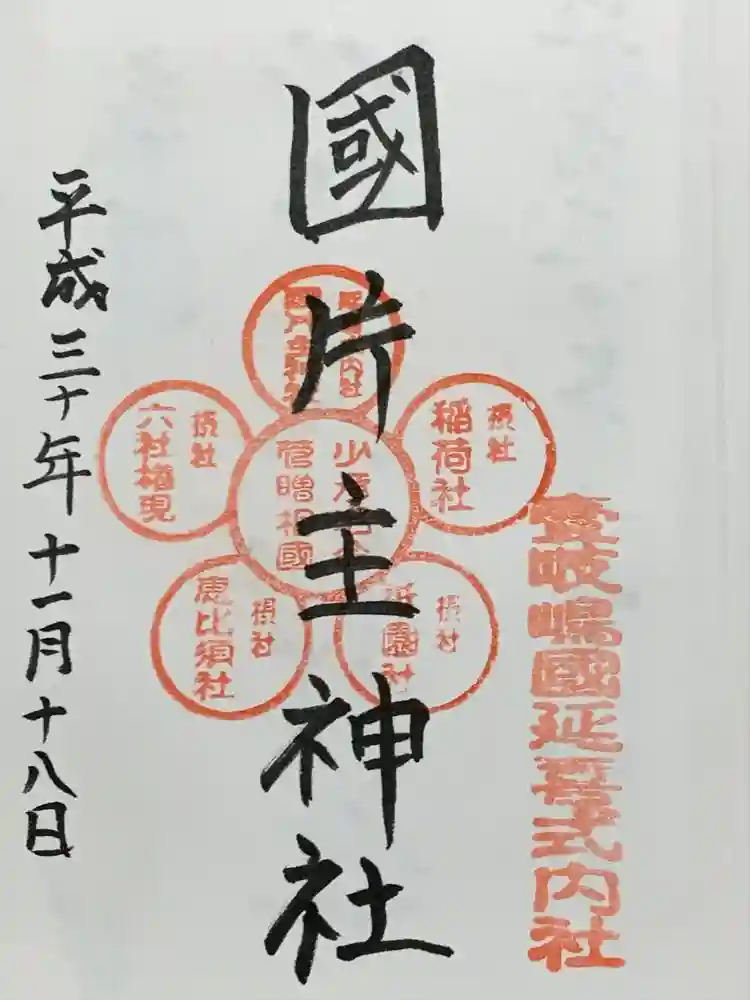 國片主神社
平成三十年十一月十八日
壹岐嶋國延喜式内社
摂社
稲荷社
摂社
六社権現
摂社
恵比須社
摂社
祇園社
菅贈相國